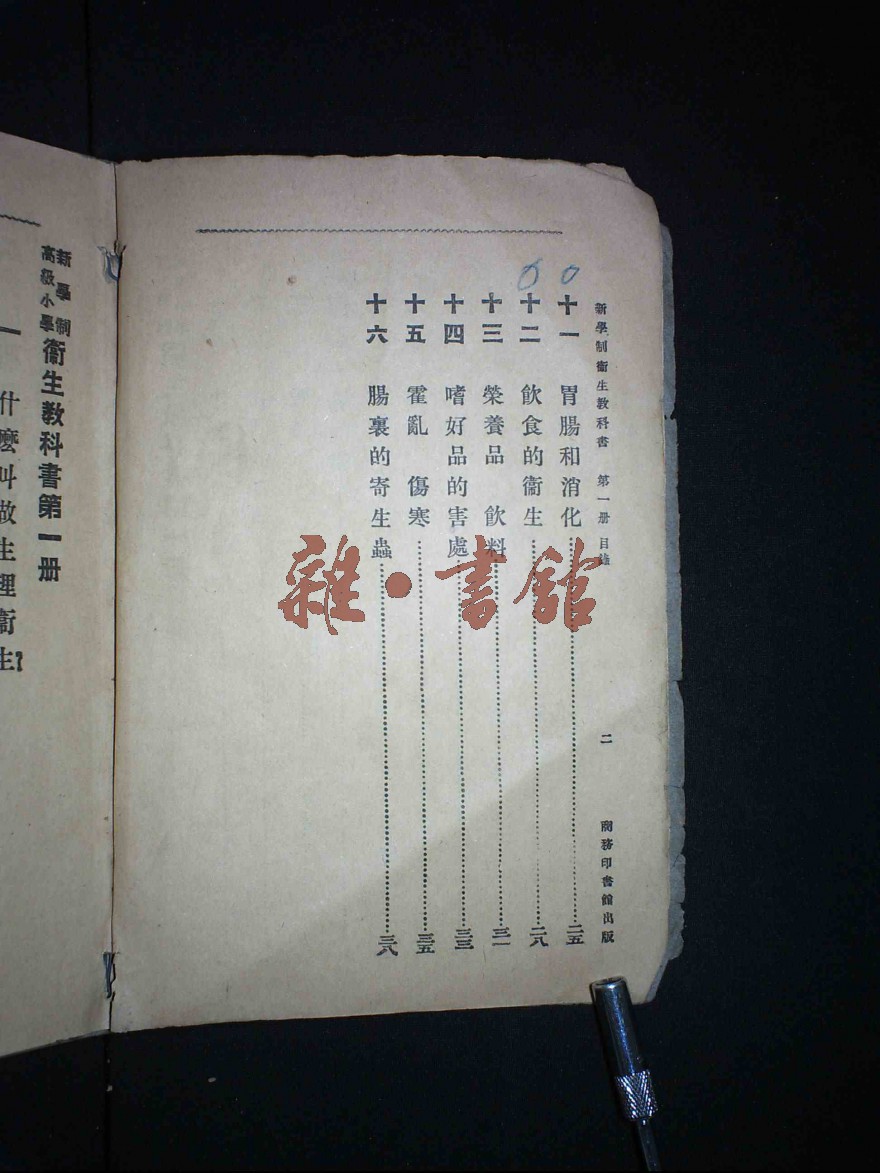 新學制衞生教科書　第一册　目錄　二　商務印書館出版
十一　胃腸和消化……二五
十二　飲食的衞生……二八
十三　榮養品　飲料……三一
十四　嗜好品的害處……三三
十五　霍亂　傷寒……三五
十六　腸裏的寄生蟲……三八
新學制高級小學衞生教科書第一册
一　什麼叫做生理衞生？
雜·書館